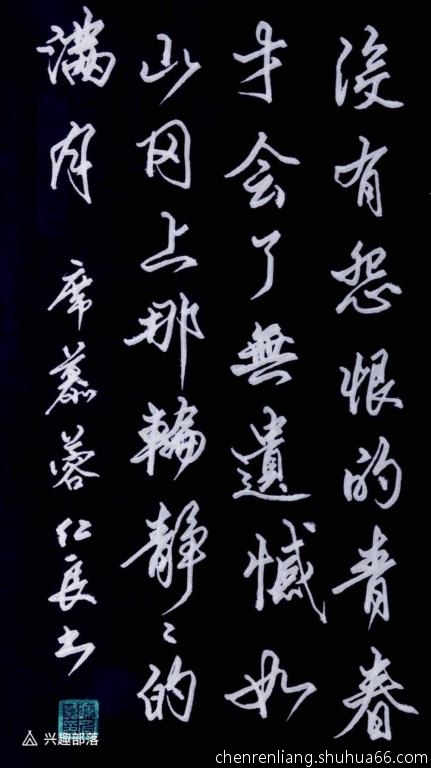 没有怨恨的青春
才会了無遺憾如
山冈上那輪静々的
满月 席慕蓉 仁良书
兴趣部落
chenrenliang.shuhua66.com